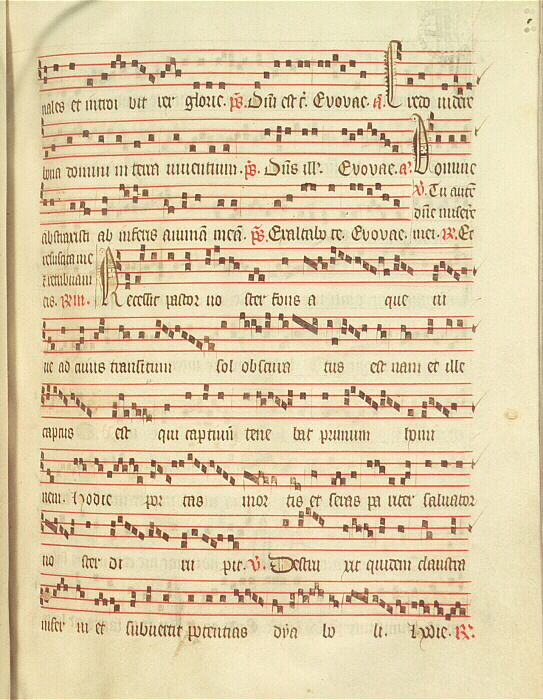 nales et introi bit rex glorie. ps. Dñi est t̃. Evovae. a. Credo videre
bona domini in terra viventium. ps. Dñs ill'. Evovae. a. Domine
℣. Tu autẽ
dñe misere
abstraxisti ab inferis animã meã. ps. Exaltabo te. Evovae. mei. ℟. Et
resuscita me
et retribuam
eis. Recessit pastor no ster fons a que vi
ve ad cuius transitum sol obscura tus est nam et ille
captus est qui captivũ tene bat primum homi
nem. Hodie por tas mor tis et seras pa riter salvator
no ster di ru pit. ℣. Destru xit quidem claustra
infer ni et subvertit potentias dya bo li. Hodie. ℟.